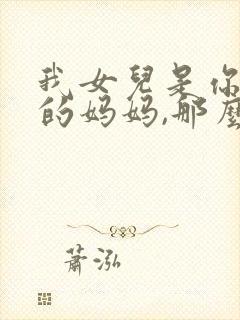 我女兒是你
的妈妈,那麼
蕭泓